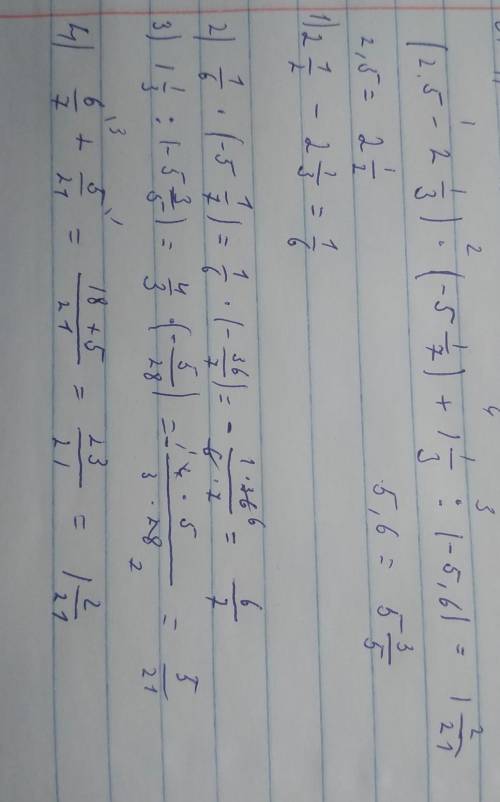 (2,5 - 2 1/3) · (-5 1/7) + 1 1/3 : (-5,6) = 1 2/21
2,5 = 2 1/2 5,6 = 5 3/5
1) 2 1/2 - 2 1/3 = 1/6
2) 1/6 · (-5 1/7) = 1/6 · (-36/7) = - 1·36/6·7 = 6/7
3) 1 1/3 : (-5 3/5) = 4/3 · (-5/28) = - 4·5/3·28 = 5/21
4) 6/7 + 5/21 = 18+5/21 = 23/21 = 1 2/21